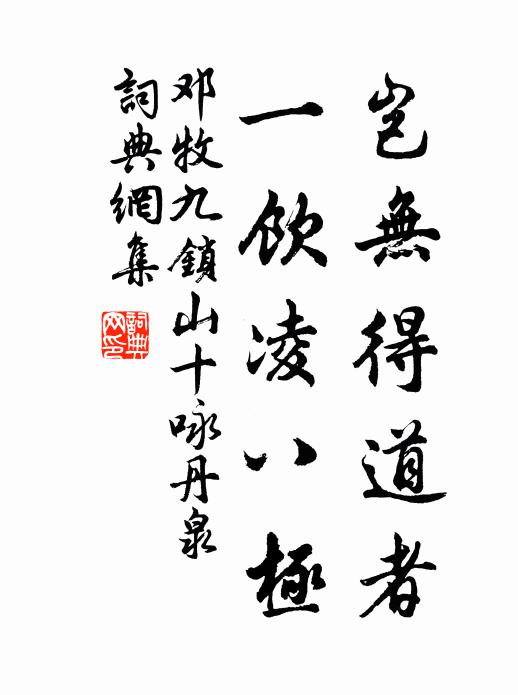 豈無得道者
一飲凌八極
邓牧九鎖山十咏丹泉
詞典網集
詞典
网印